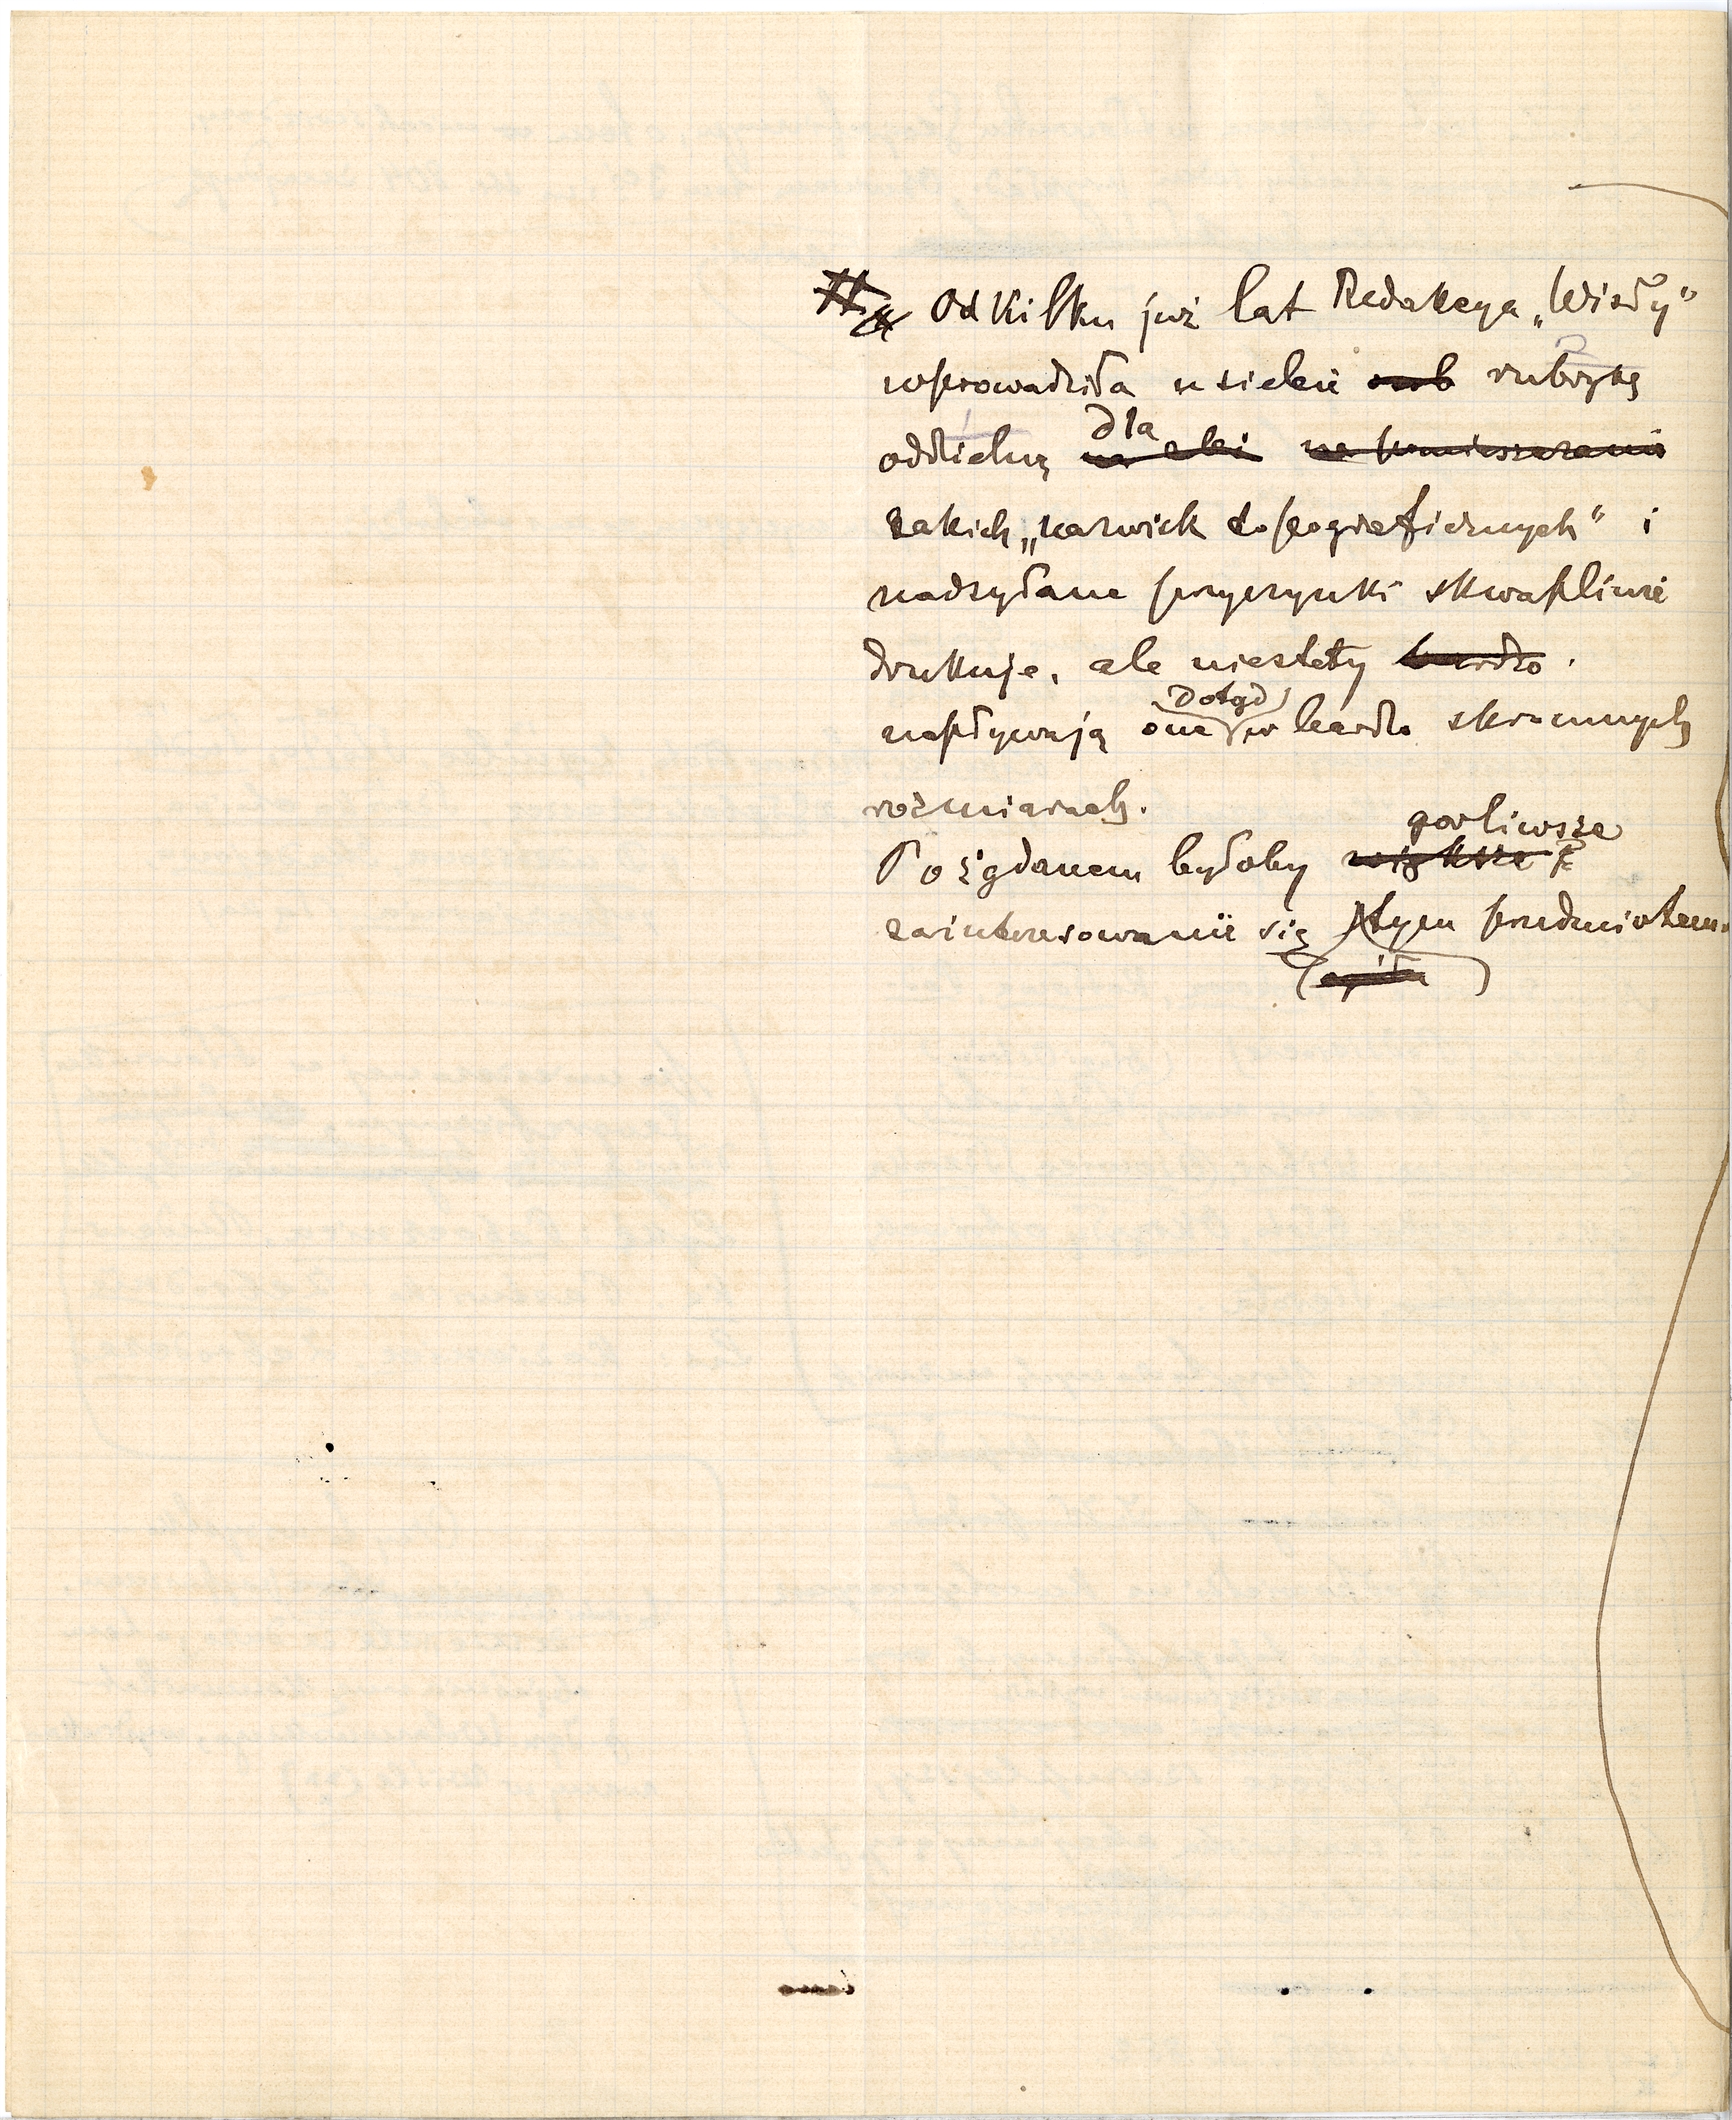 Od kilku już lat Redakcya „Wisły”
wprowadziła u siebie rubrykę
oddzielną dla
takich „nazwisk topograficznych” i
nadsyłane przyczynki skwapliwie
drukuje, ale niestety bardzo.
napływają one dotąd w bardzo skromnych
rozmiarach.
Pożądanem byłoby większe gorliwsze
zainteresowanie się tym przedmiotem.